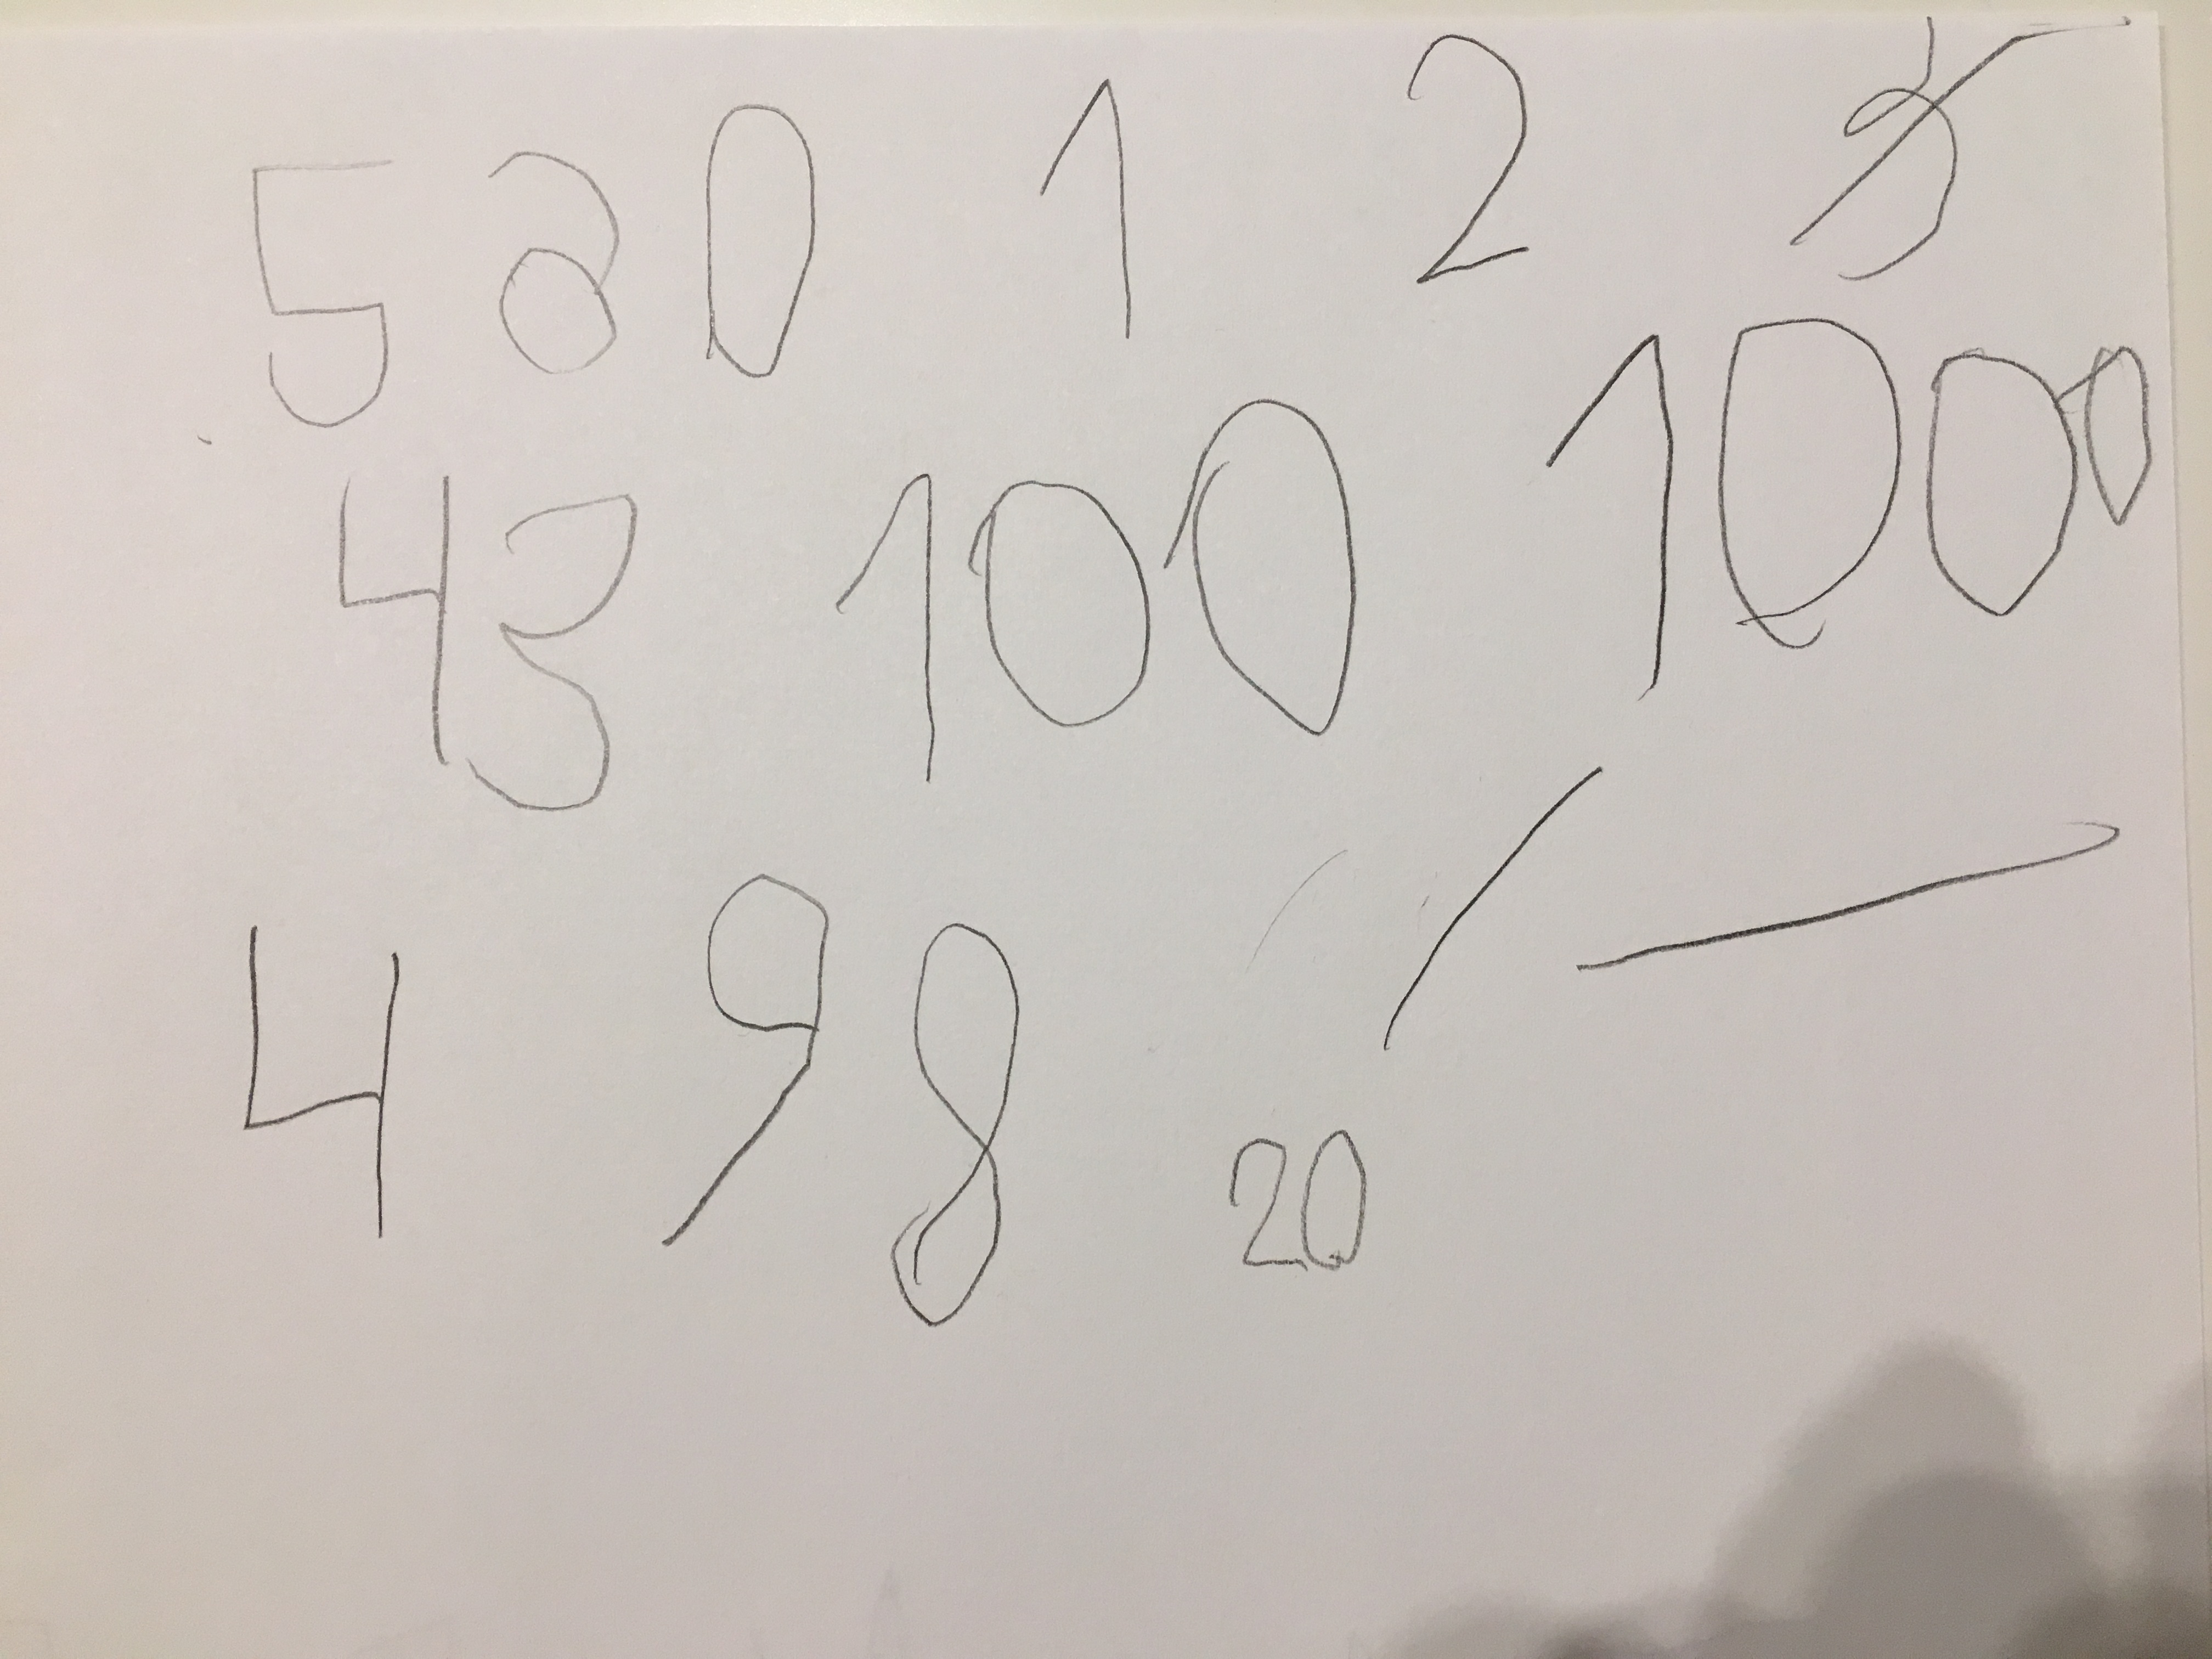 5 6 0 1 2
43 100 1000
4 9 8
20